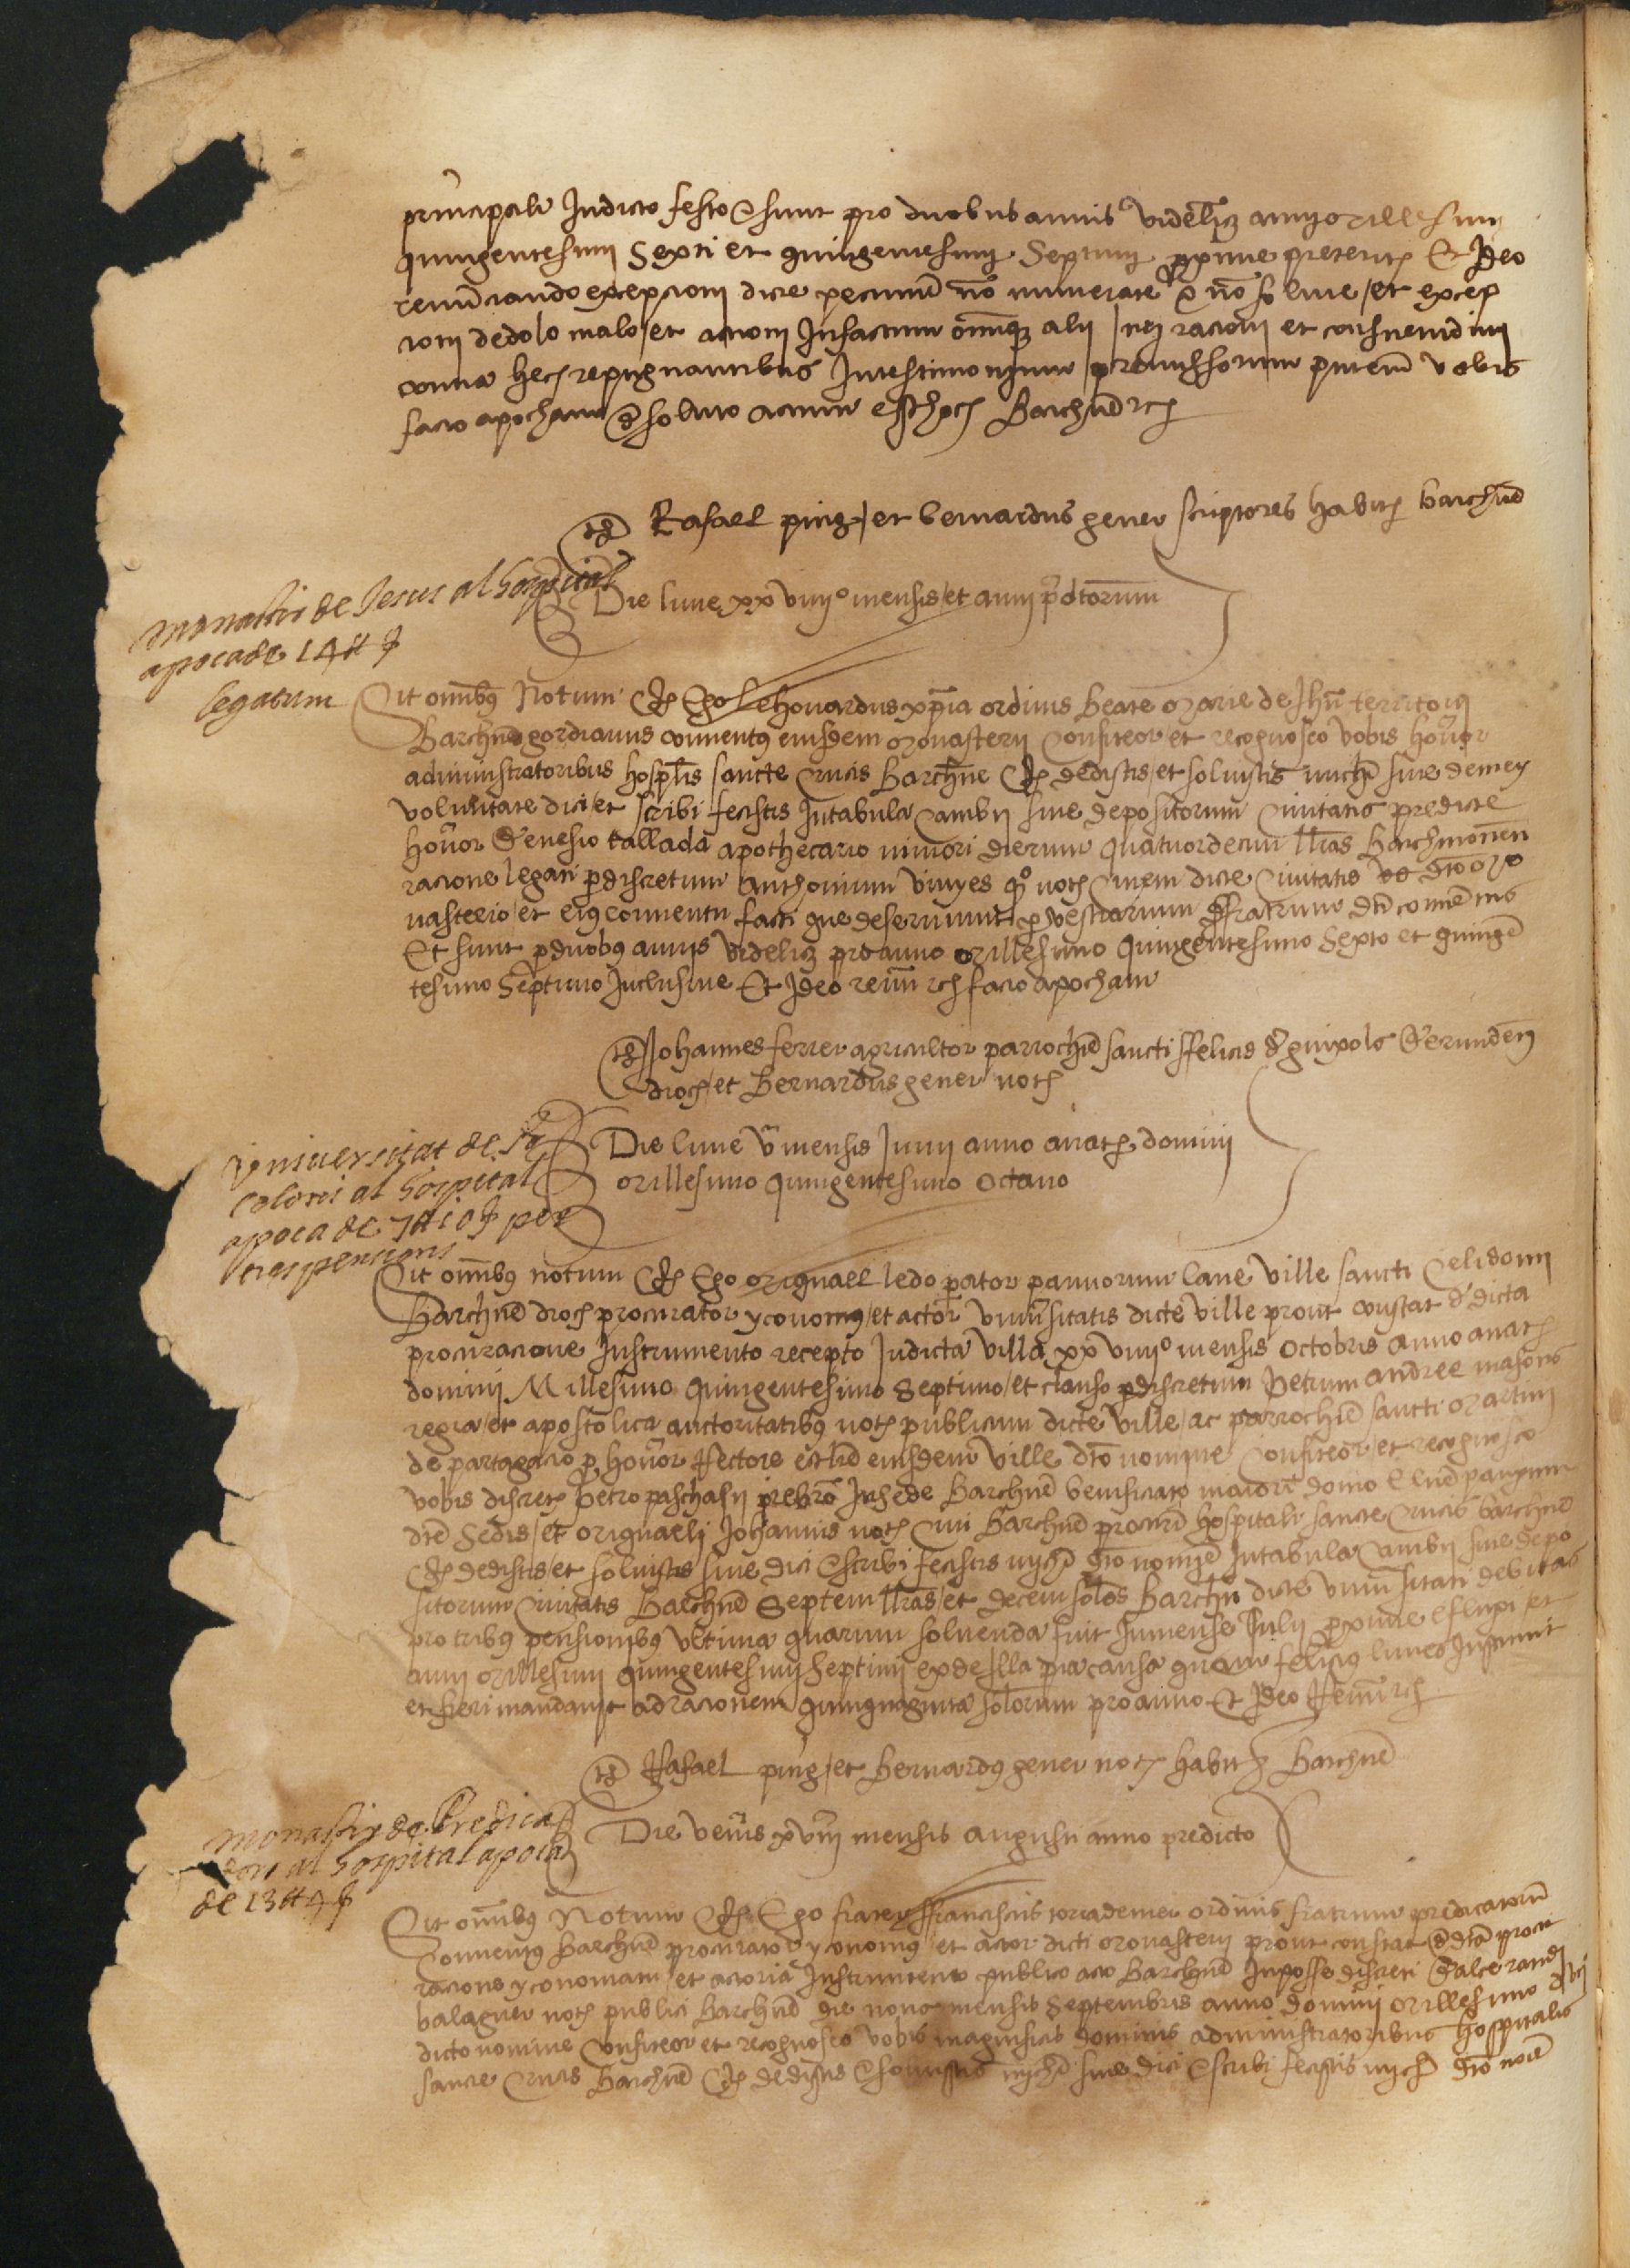 principali Indicto festo et sunt pro duobus annis videlicet anni Millesimi
quingentesimi Sexti et quingentesimi Septimi proxime preteritis Et Ideo
renunciando excepcioni dicte peccunie non numerate et non solute / et excep
cioni de dolo malo / et accioni Infactum omnique alii Juri racioni et consuetudini
contra hec repugnantibus Intestimonium premissorum presentem vobis
facio apocham de soluto actum est hoc Barchinone etc
Testes Rafael puig / et bernardus gener scriptores habitatores barchinone
monastir de Jesus al hospital
apoca de 14 ll s
legatum
Die lune xxviiiiº mensis / et anni predictorum
Sit omnibus Notum Quod Ego Lehonardus xpia ordinis Beate Marie de Jhu territorii
Barchinone gordianus conventus eiusdem Monasterii Confiteor et recognosco vobis honorabilibus
administratoribus hospitalis sancte Crucis Barchinone Quod dedistis / et solvistis michi sive de mey
voluntate dici / et scribi fecistis Intabula Cambii sive depositorum Civitatis predicte
honorabili Genesio tallada apothecario minori dierum quatuordecim libras Barchinonen
racione legati per discretum Anthonium vinyes quondam notarium Civem dicte Civitatis dicto Mo
nasterio / et eius conventu facti que deserviunt per vestiarium fratrum dicti conventus
Et sunt per duobus annis videlicet pro anno Millesimo Quingentesimo Sexto et quinge
tesimo Septimo Inclusive Et Ideo renun etc facio apocham
Testes Johannes ferrer agricultor parrochie sancti ffelicis de guixols Gerunden
dioc / et Bernardus gener notarius
Die lune v mensis Junii anno a nativitate domini
Millesimo quingentesimo octavo
Vniversitat de St
Celoni al hospital
apoca de 7 ll 10 s per
tres pensions
Sit omnibus notum Quod Ego Miquael ledo parator pannorum lane ville sancti Celidonii
Barchinone dioc procurator yconomus / et actor universitatis dicte ville prout constat de dicta
procuracione Instrumento recepto Indicta villa xxviiiiº mensis Octobris anno a nat
domini Millesimo quingentesimo Septimo / et clauso per discretum Petrum andree masons
regia / et apostolica auctoritatibus notarium publicum dicte ville / ac parrochie sancti Martini
de partagacio per honorabilem Rectore ecclesie eiusdem ville dicto nomine Confiteor / et recognosco
vobis discretis Petro paschasii prebitero Insede Barchinone beneficiato maiori domo
dicte Sedis / et Miquaeli Johannis notario civi Barchinone procuratori hospitalis sancte Crucis barchinone
Quod dedistis / et solvistis sive dici et scribi fecistis michi dicto nomine Intabula Cambii sive depo
sitorum Civitatis Barchinone Septem libras / et decem solidos Barchin dicte universitati debitas
pro tribus pensionibus ultima quarum solvenda fuit Inmense Julii proxime efluxi et
anni Millesimi quingentesimi Septimi ex de Illa pia causa quam felicius lunes Instituit
et fieri mandavit ad racionem quinquaginta solidorum pro anno Et Ideo Renun etc
Testes Rafael puig / et Bernardus gener notarii habitatores Barchinone
monastir de Predica
dors al hospital apoca
de 13 ll 4 s
Die veneris xviii mensis Augusti anno predicto
Sit omnibus Notum Quod Ego frater ffranciscus torrademer ordinis fratrum predicatorum
Conventus barchinone procurator yconomus / et actor dicti Monasterii prout constat de dicta procu
racione yconomatu / et actoria Instrumento publico acto Barchinone Inposse discreti Galcerandi
balaguer notarii publici Barchinone die nono mensis Septembris anno domini Millesimo
dicto nomine Confiteor et recognosco vobis magnificis dominis administratoribus hospitalis
sancte Crucis Barchinone Quod dedistis et solvistis michi sive dici et scribi fecistis michi dicto nomine